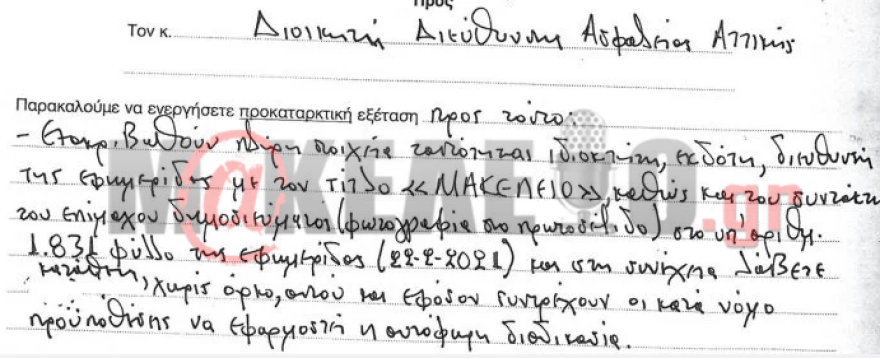 Προς
Τον κ. Διοικητή Διεύθυνσης Ασφαλείας Αττικής
Παρακαλούμε να ενεργήσετε προκαταρκτική εξέταση προς τούτο:
- Εξακριβωθούν πλήρη στοιχεία ταυτότητας ιδιοκτήτη, εκδότη, διευθυντή
της εφημερίδας με τον τίτλο «ΜΑΚΕΛΕΙΟ», καθώς και του συντάκτη
του επίμαχου δημοσιεύματος (φωτογραφία στο πρωτοσέλιδο) στο υπ' αριθμ.
1.831 φύλλο της εφημερίδας (22-2-2021) και στη συνέχεια λάβετε
κατάθεση, χωρίς όρκο, αυτού και εφόσον συντρέχουν οι κατά νόμο
προϋποθέσεις να εφαρμοστή η αυτόφωρη διαδικασία.
M@ΚΕΛΕΙΟ.gr